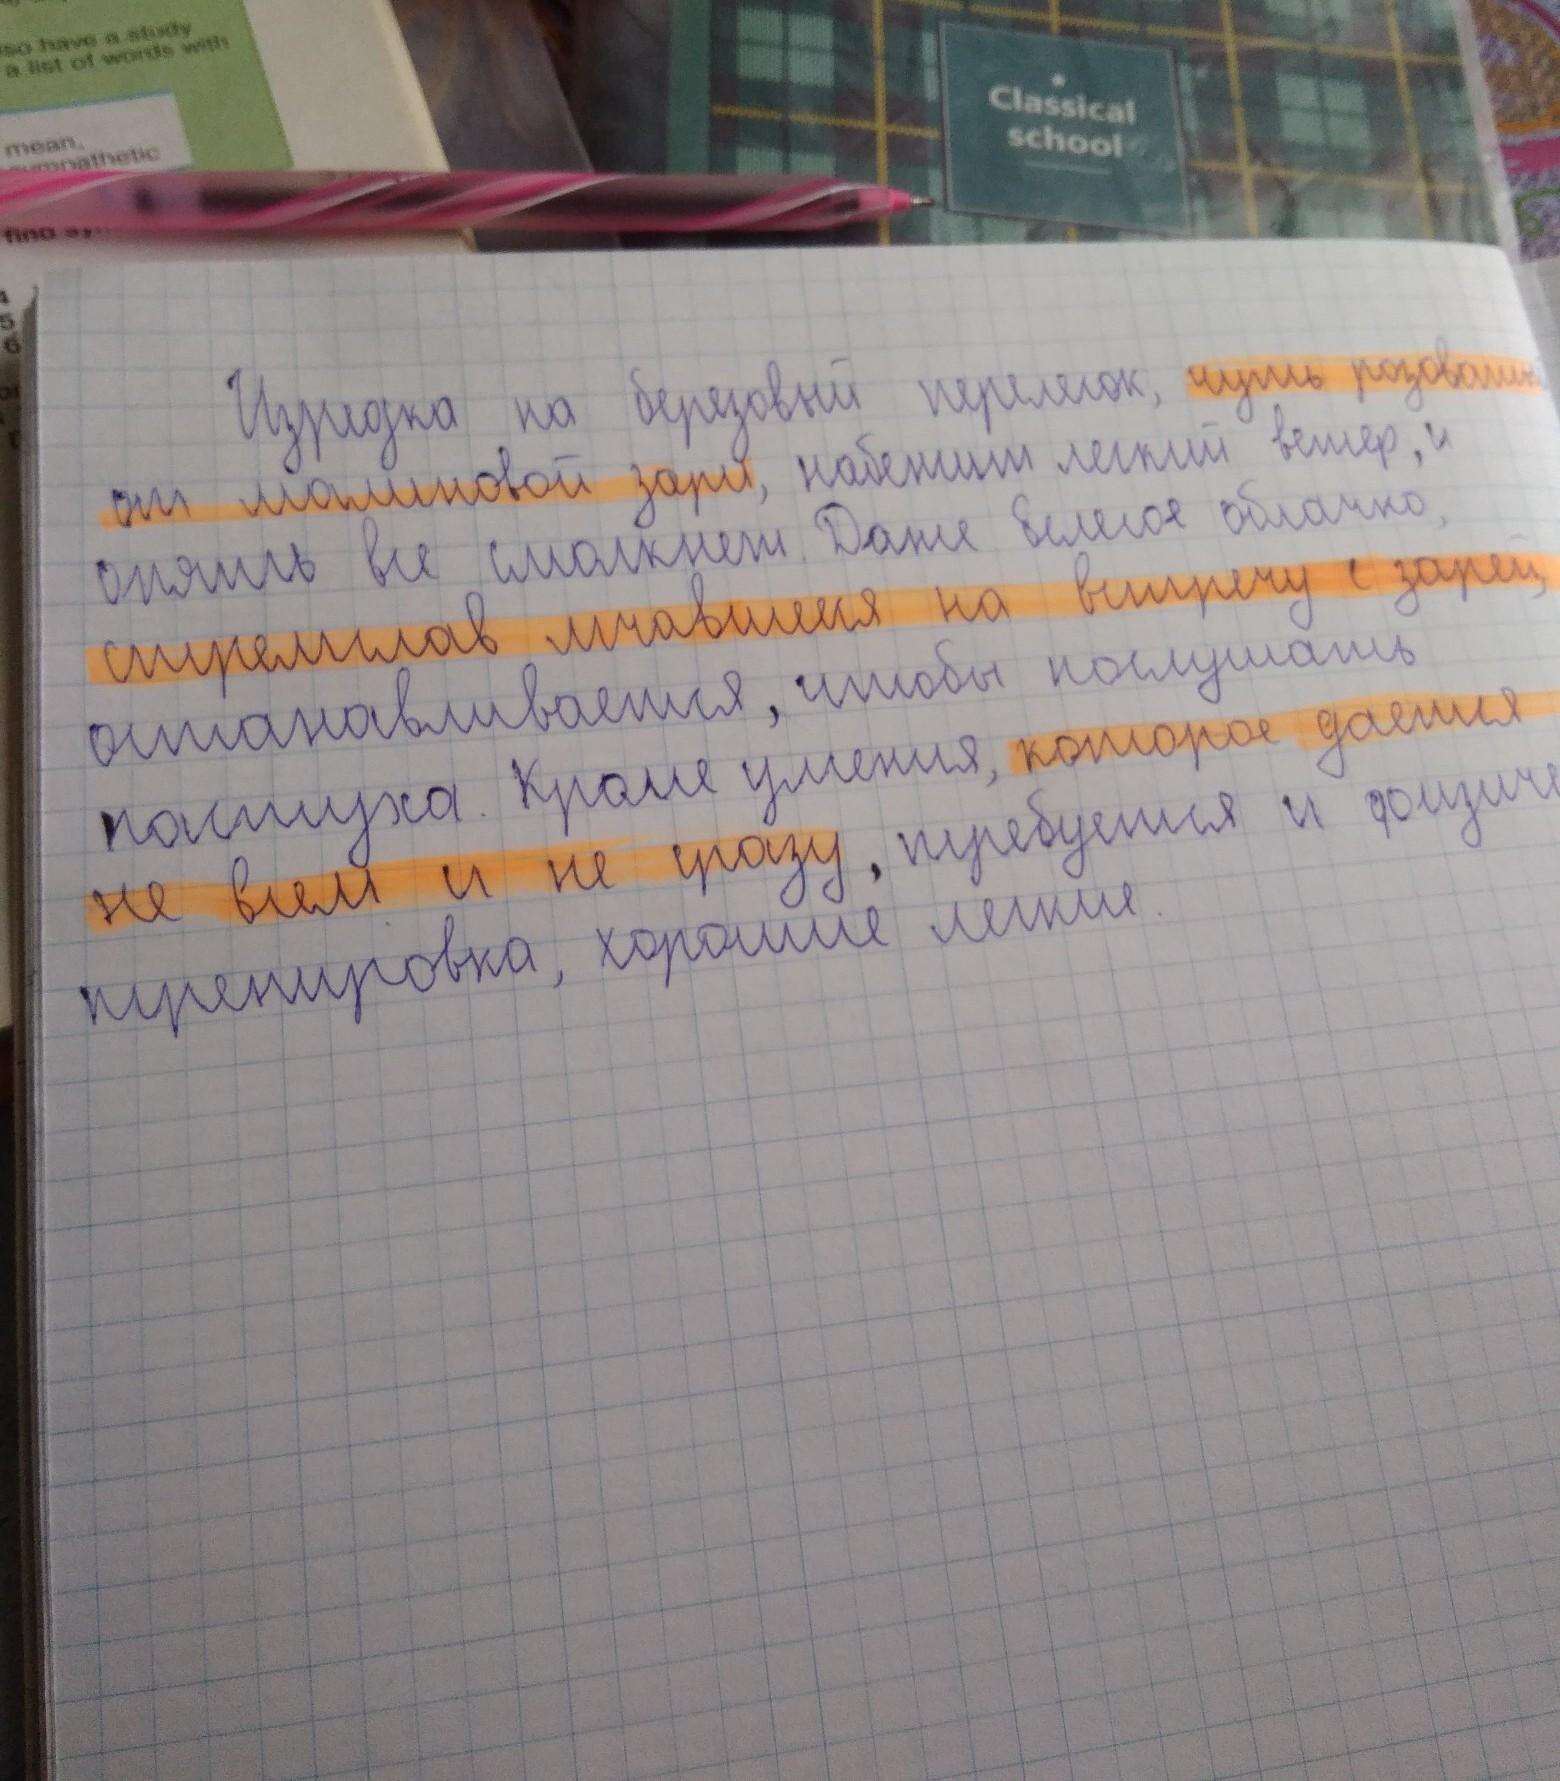 so have a study
a list of words with
mean,
sympathetic
find sy
4
5
6
Classical
school
Изредка на березовый перелесок, чуть
от малиновой зари, набежит легкий ветер, и
опять все смолкнет. Даже белесое облачко,
стремглав мчавшееся на встречу с зарей,
останавливается, чтобы послушать
пастуха. Кроме умения, которое дается
не всем и не сразу, требуется и физиче
тренировка, хорошие легкие.